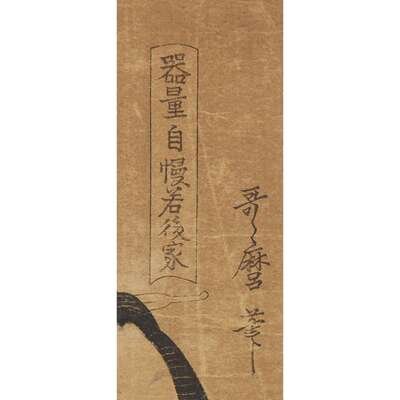 器量自慢若後家
哥麿筆